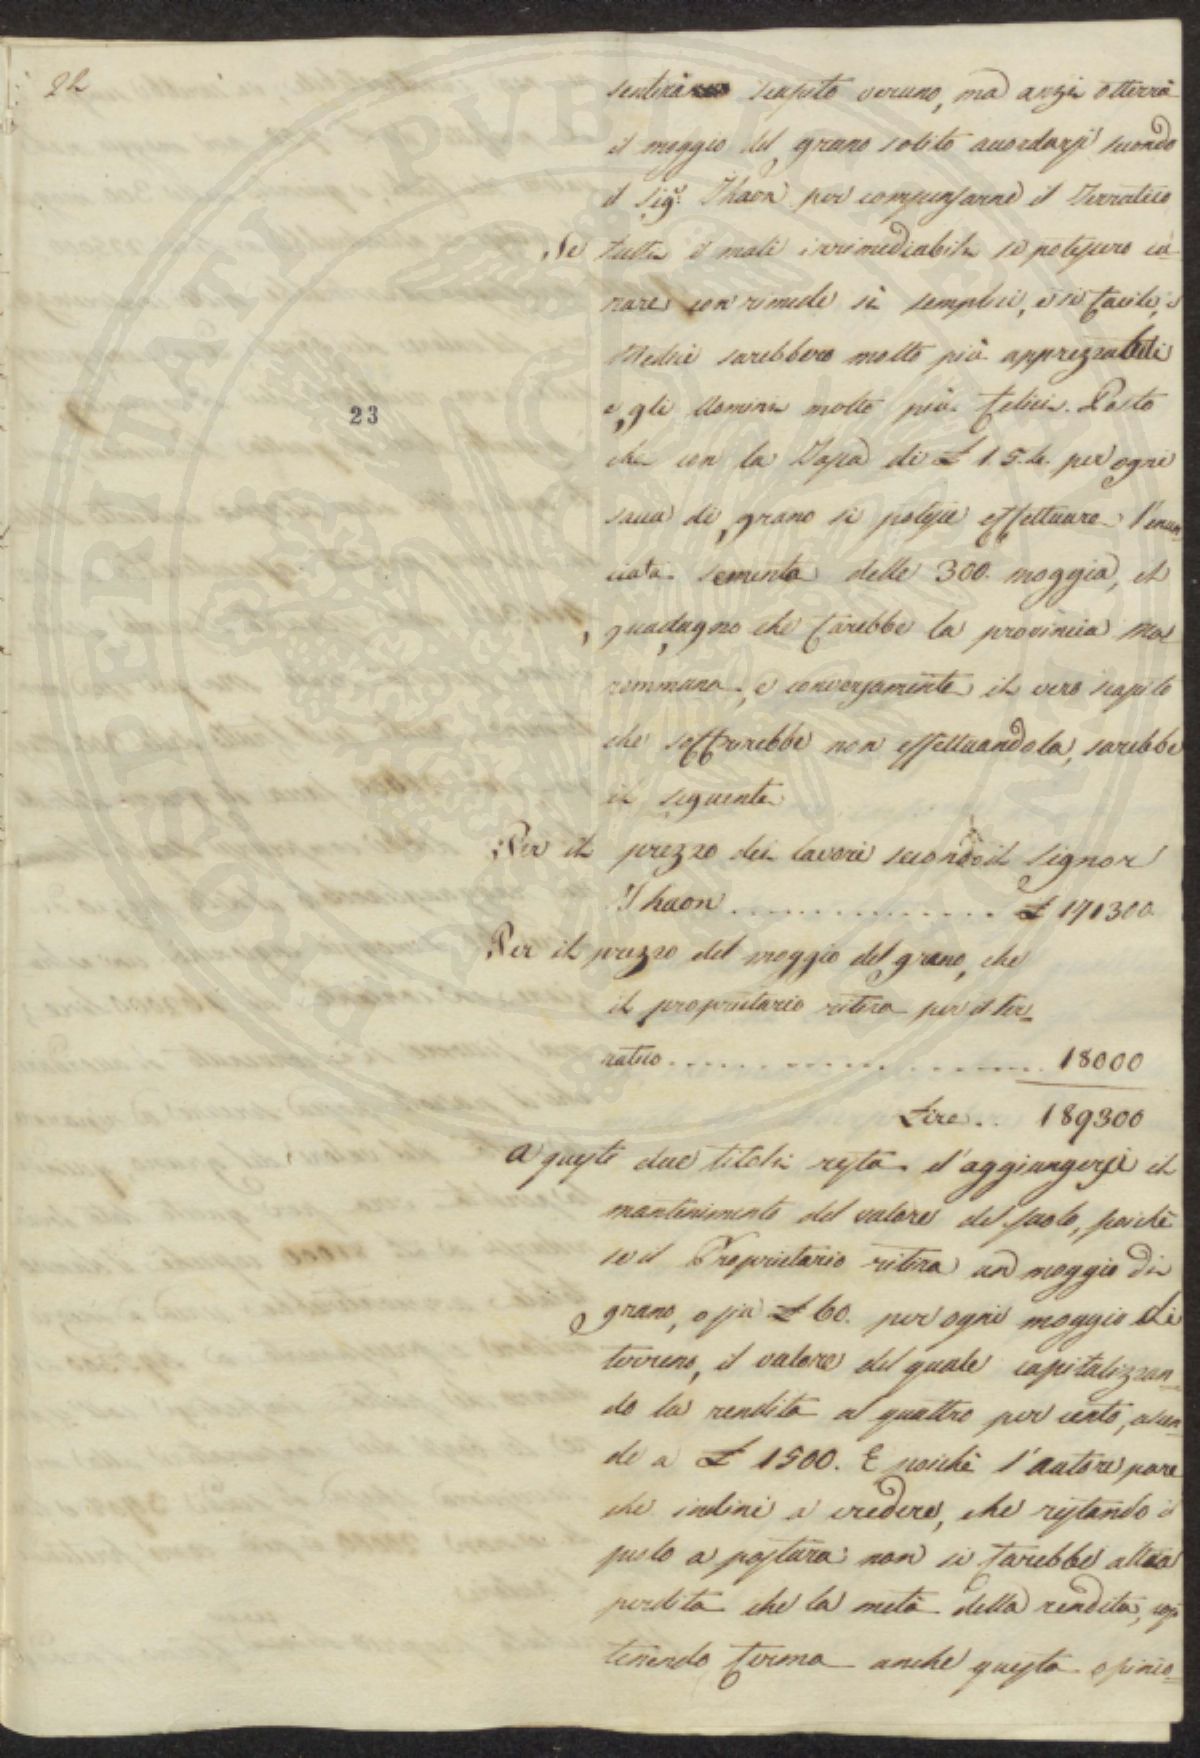 22
23
sentirà scapito veruno, ma anzi otterrà
il moggio del grano solito accordarsi secondo
il Sig.r Thaon per compensarne il Terratico
Se tutti i mali irrimediabili si potessero cu-
rare con rimedi sì semplici, e sì facili, i
Medici sarebbero molto più apprezzabili
e gli Uomini molto più felici. Posto
che con la Tassa di £ 1.5.4. per ogni
sacca di grano si potesse effettuare l'enun-
ciata sementa delle 300. moggia, il
guadagno che farebbe la provincia Ma-
remmana, e conversamente il vero scapito
che soffrirebbe non effettuandola, sarebbe
il seguente
Per il prezzo dei lavori secondo il Signor
Thaon .............. £ 171300
Per il prezzo del moggio del grano, che
il proprietario ritira per il ter-
ratico .................. 18000
Lire .. 189300
A questi due titoli resta d'aggiungersi il
mantenimento del valore del suolo, poichè
se il Proprietario ritira un moggio di
grano, ossia £ 60. per ogni moggio di
terreno, il valore del quale capitalizzan-
do la rendita al quattro per cento, ascen-
de a £ 1500. E poichè l'autore pare
che inclini a credere, che restando il
suolo a pastura non si farebbe altra
perdita che la metà della rendita,
tenendo ferma anche questa opinio-